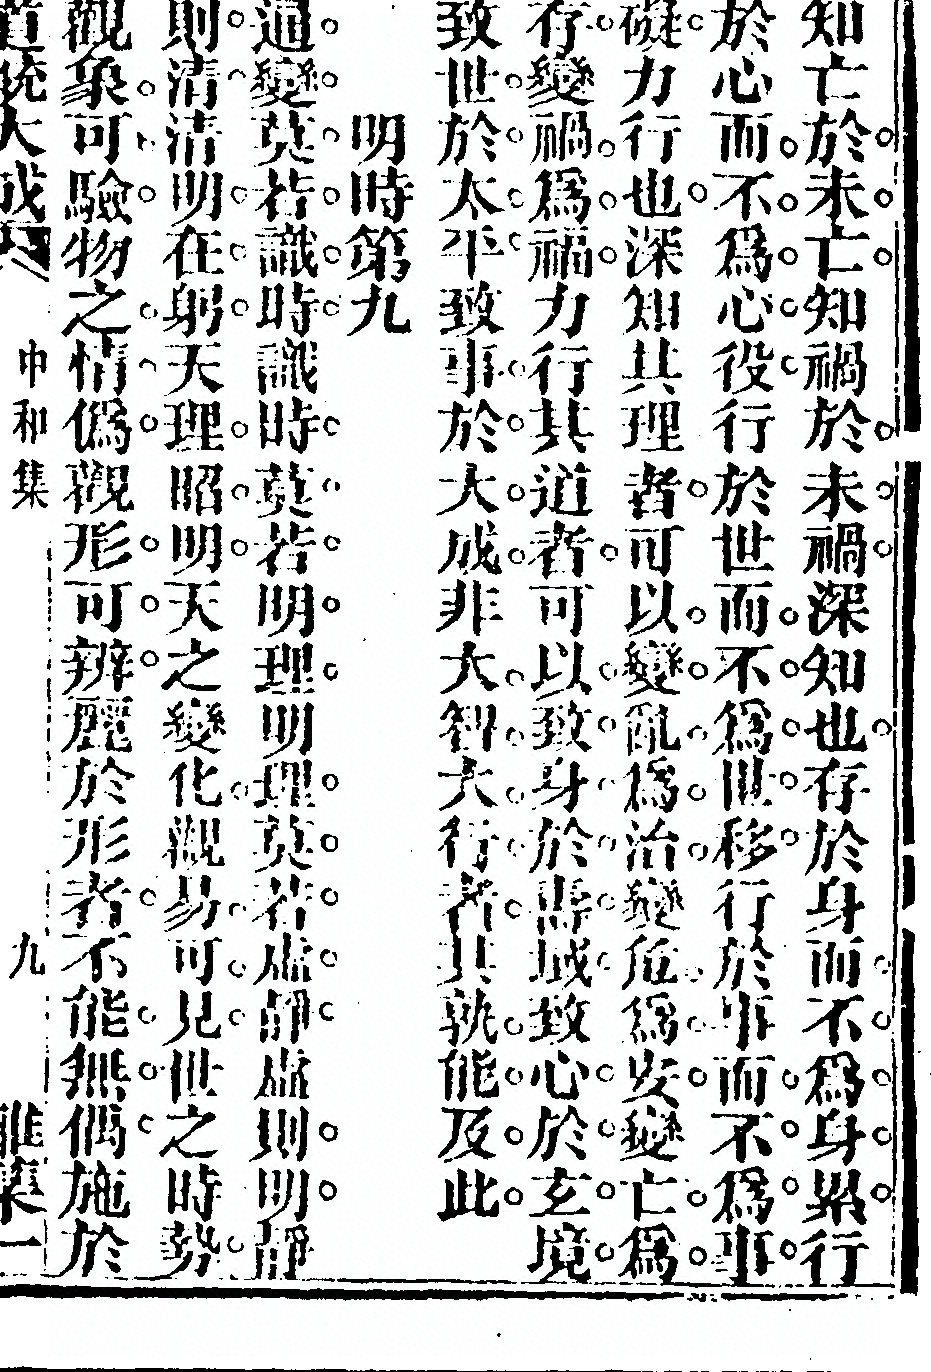 知亡於未亡知禍於未禍深知也存於身而不爲身累行
於心而不爲心役行於世而不爲世移行於事而不爲事
礙力行也深知其理者可以變亂爲治變危爲安變亡爲
存變禍爲福力行其道者可以致身於壽域致心於玄境
致世於太平致事於大成非大智大行者其孰能及此
明時第九
通變莫若識時識時莫若明理明理莫若虛靜虛則明靜
則清清明在躬天理昭明天之變化觀易可見世之時勢
觀象可驗物之情僞觀形可辨麗於形者不能無偶施於
道統大成 中和集 九 雅集一